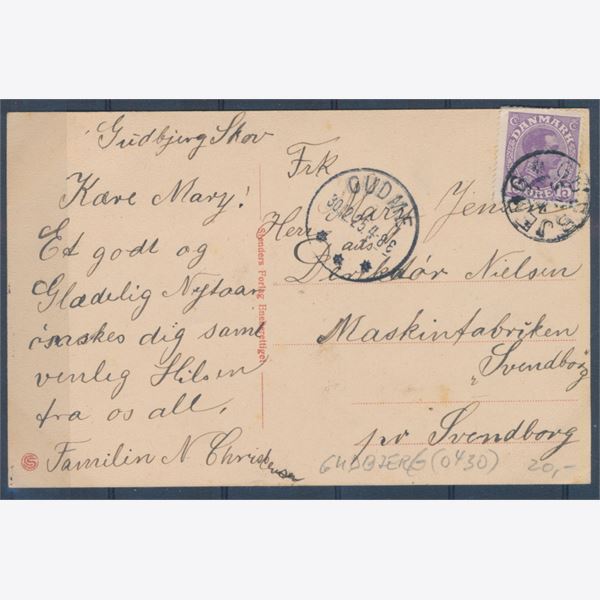 Gudbjerg Skov
Kære Mary!
Et godt og
Glædelig Nytaar
ønskes dig samt
venlig Hilsen
fra os all.
Familin N Christensen
Stenders Forlag Eneberettiget
Frk
Mary Jensen
Herr
Direktør Nielsen
Maskinfabriken
Svendborg
pr Svendborg
GUDME
30.12.25.4-8E
DANMARK
15 ØRE
GUDBJERG
GUDBJERG (0430) 20,-